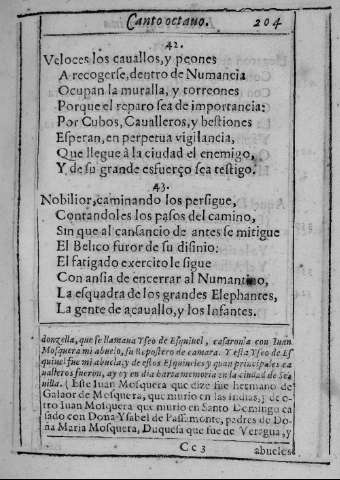 Canto octauo. 204
42.
Veloces los cauallos, y peones
A recogerse, dentro de Numancia
Ocupan la muralla, y torreones
Porque el reparo sea de importancia:
Por Cubos, Caualleros, y bestiones
Esperan, en perpetua vigilancia,
Que llegue à la ciudad el enemigo,
Y de su grande esfuerço sea testigo.
43.
Nobilior, caminando los persigue,
Contandoles los pasos del camino,
Sin que al cansancio de antes se mitigue
El Belico furor de su disinio:
El fatigado exercito le sigue
Con ansia de encerrar al Numantino,
La esquadra de los grandes Elephantes,
La gente de acauallo, y los Infantes.
donzella, que se llamaua Yseo de Esquiuel, casaronla con Iuan
Mosquera mi abuelo, su Repostero de camara. Y esta Yseo de Es
quiuel fue mi abuela: y de estos Esquiueles y quan principales ca
ualleros fueron, ay oy en dia harta memoria en la ciudad de Se
uilla. (Este Iuan Mosquera que dize fue hermano de
Galaor de Mosquera, que murio en las indias, y de o
tro Iuan Mosquera que murio en Santo Domingo ca
sado con Doña Ysabel de Passamonte, padres de Do
ña Maria Mosquera, Duquesa que fue de Veragua, y
Cc 3 abueles